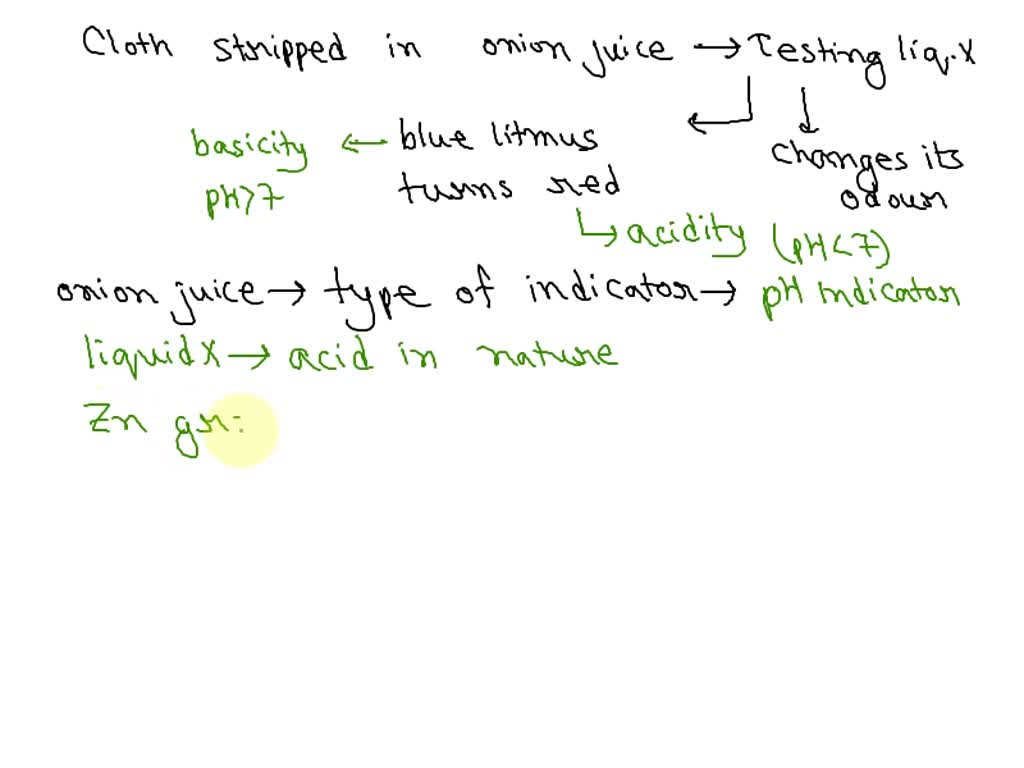 Cloth stripped in onion juice → Testing liq. X
basicity ← blue litmus changes its
pH>7 turns red odour
↳ acidity (pH<7)
onion juice → type of indicator → pH indicator
liquid X → acid in nature
Zn gr